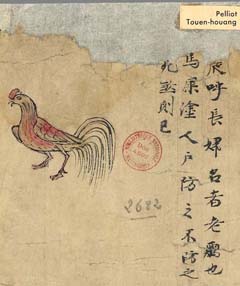 Pelliot
Touen-houang
夜呼長婦名者老鷄也
馬屎塗人戶防之不防之
則已
2682